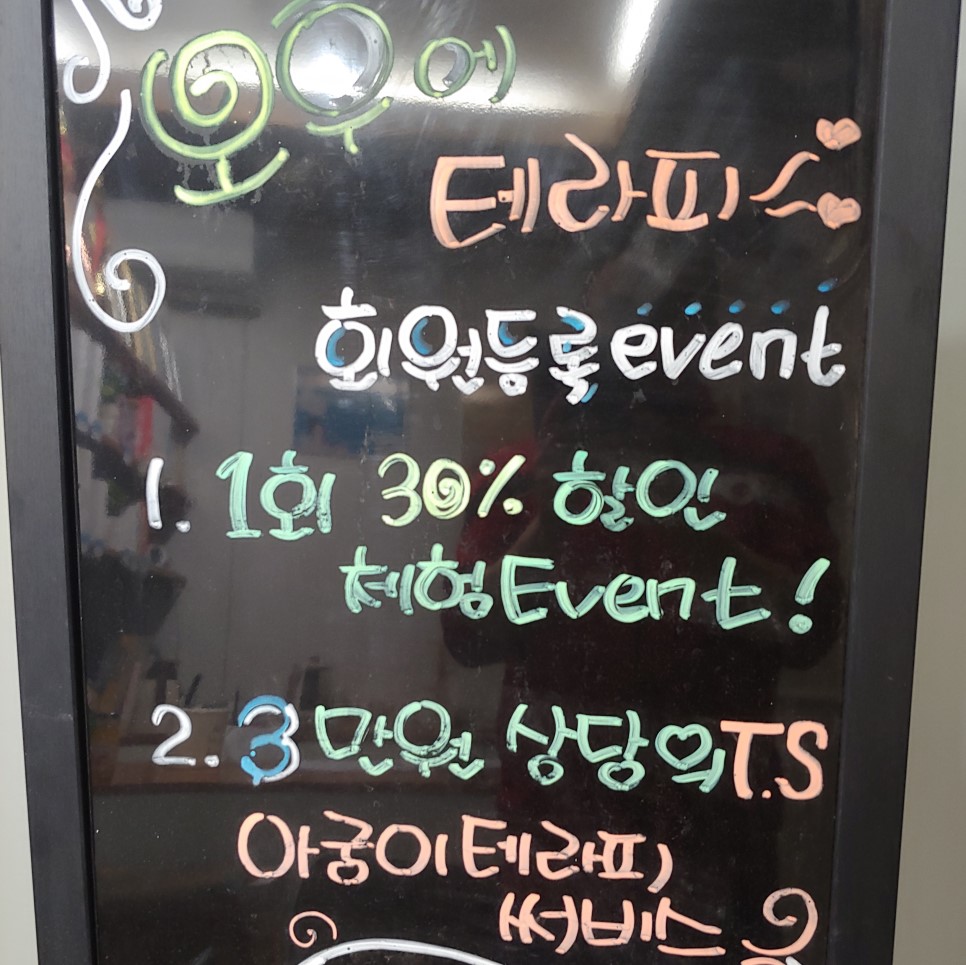 오우에
테라피스
회원등록event
1. 1회 30% 할인
체험Event!
2. 3만원 상당의T.S
아궁이테라피
써비스